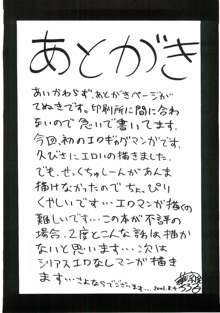 あとがき
あいかわらず、あとがきページが
てぬきです。印刷所に間に合わ
ないので急いで書いてます.
今回、初のエロギャグマンガです。
久びさにエロいの描きました.
でも、せ,くちゅーんがあんま
描けなかったのでちょ,ぴり
くやしいです…エロマンガ描くの
難しいです…この本が不評の
場合、2度とこんな話は描か
ないと思います…次は
シリアスエロなしマンガ描き
ます…さよならでございます…